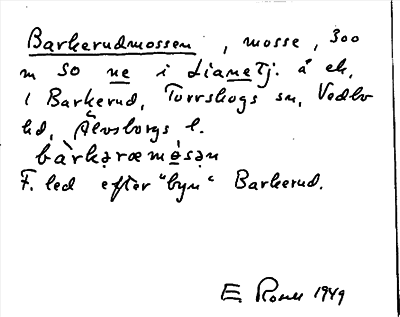 Barkerudmossen, mosse, 300
m SO ne i Lianetj. å ek.
1 Barkerud, Torrskogs sn, Vedbo
hd, Älvsborgs l.
bàrkərœmòsən
F. led efter "byn" Barkerud.
E. Rosell 1949